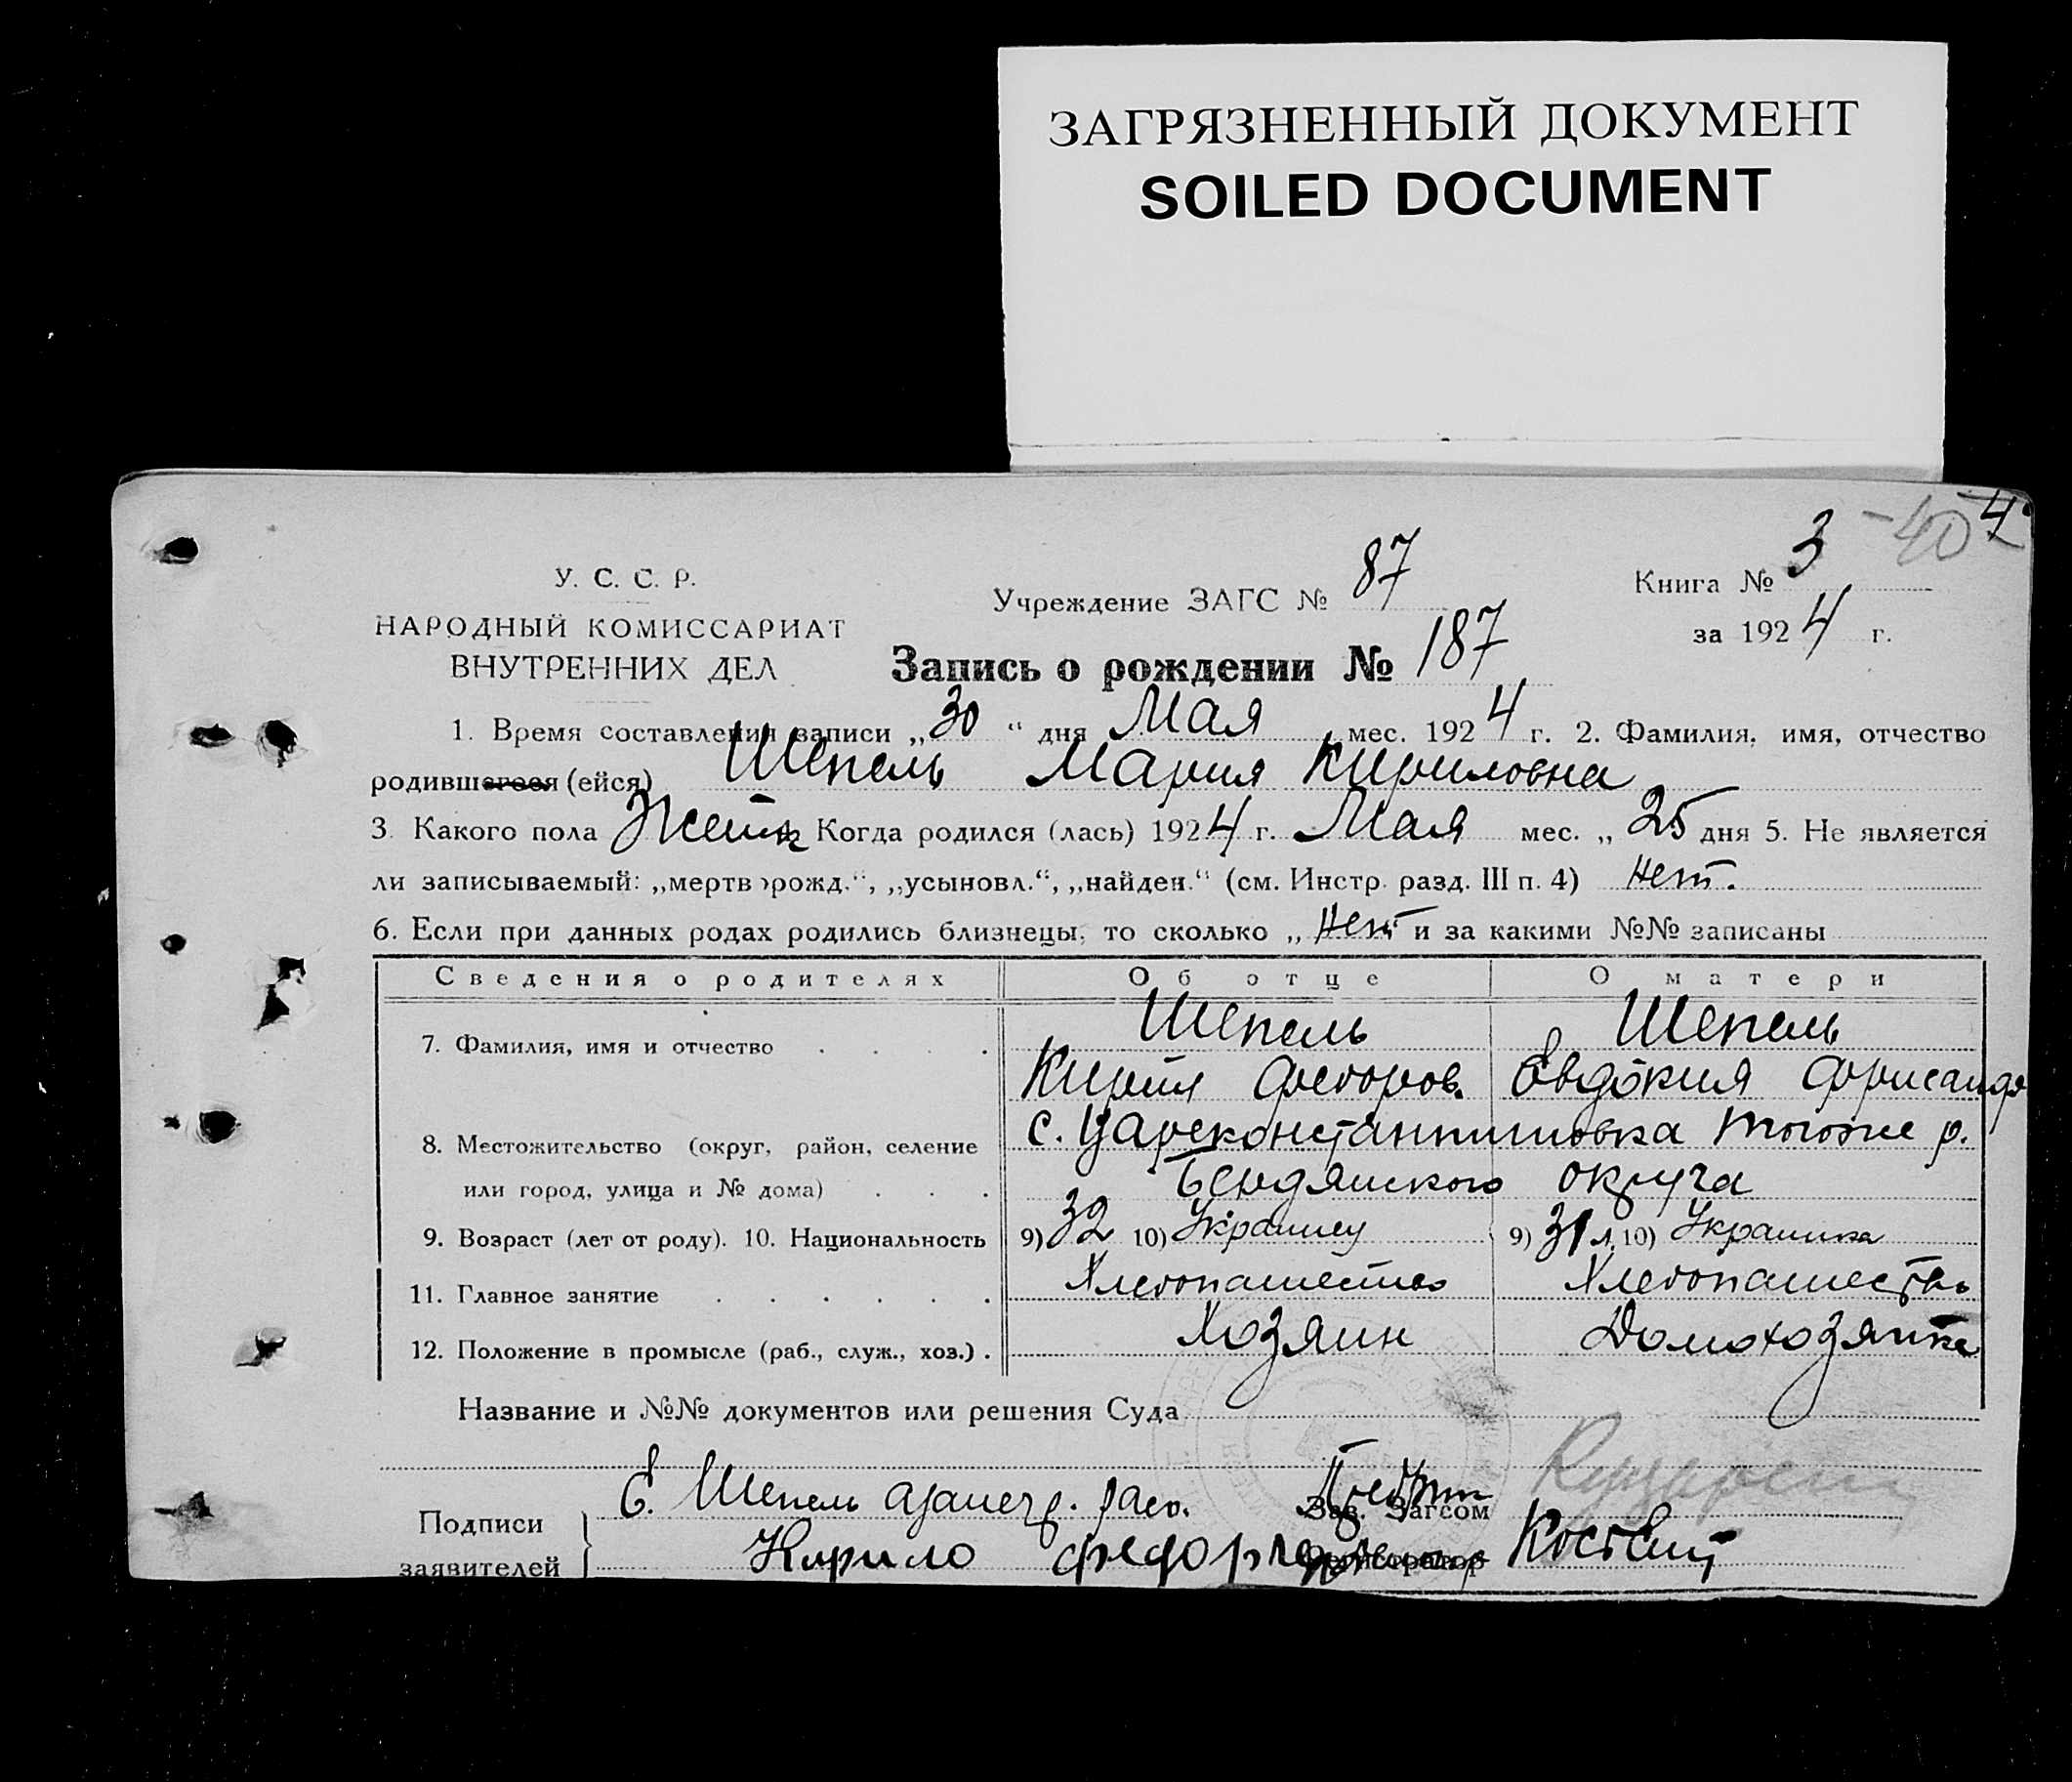 ЗАГРЯЗНЕННЫЙ ДОКУМЕНТ
SOILED DOCUMENT
3 -40 4
У. С. С. Р.
Учреждение ЗАГС № 87
Книга №
НАРОДНЫЙ КОМИССАРИАТ
за 1924 г.
ВНУТРЕННИХ ДЕЛ
Запись о рождении № 187
1. Время составления записи „30“ дня Мая мес. 1924 г. 2. Фамилия, имя, отчество
родившегося (ейся) Шепель Мария Кириловна
3. Какого пола Женск Когда родился (лась) 1924 г. Мая мес. „25 дня 5. Не является
ли записываемый: „мертворожд.“, „усыновл.“, „найден.“ (см. Инстр. разд. III п. 4) нет.
6. Если при данных родах родились близнецы, то сколько „нет“ и за какими №№ записаны
Сведения о родителях Об отце О матери
Шепель Шепель
7. Фамилия, имя и отчество
Кирил Федоров. Евдокия
с. Цареконстантиновка тогоже р.
8. Местожительство (округ, район, селение
или город, улица и № дома)
Бердянского округа
9. Возраст (лет от роду). 10. Национальность 9) 32 10) Украинец 9) 31 л. 10) Украинка
11. Главное занятие Хлебопашество Хлебопашество
12. Положение в промысле (раб., служ., хоз.) Хозяин Домохозяйка
Название и №№ документов или решения Суда
Е. Шепель
Зав. Загсом
Подписи
заявителей
Кирило